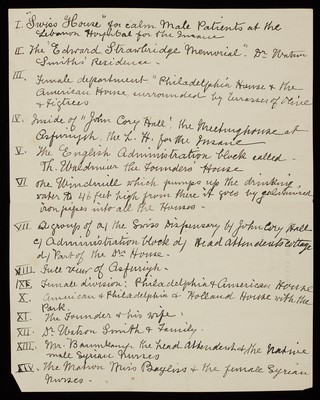 I. "Swiss House" for calm Male Patients at the
Lebanon Hospital for the Insane
II. The "Edward Strawbridge Memorial". Dr Watson
Smiths' Residence -
III. Female department "Philadelphia House & the
American House surrounded by terrasses of Olive
& Figtrees
IV. Inside of "John Cory Hall", the Meetinghouse at
Asfuriyeh, the L. H. for the Insane
V. The English Administration block called -
Th. Waldmeier the Founders' House
VI. The Windmill which pumps up the drinking
water to 46 feet high from there it goes by galvanised
iron pipes into all the Houses -
VII. A group of a) the Swiss Dispensary b) John Cory Hall
c) Administration block d) Head Attendents cottage
d) Part of the Drs House -
VIII. Full view of Asfuriyeh -
IX. Female division; Philadelphia & American House
X. American & Philadelphia & Holland House with the
Park.
XI. The Founder & his wife.
XII. Dr Watson Smith & Family.
XIII. Mr. Baumkamp. the head Attendent & the Native
male Syrian Nurses
XIV. The Matron Miss Bayliss & the female Syrian
Nurses -